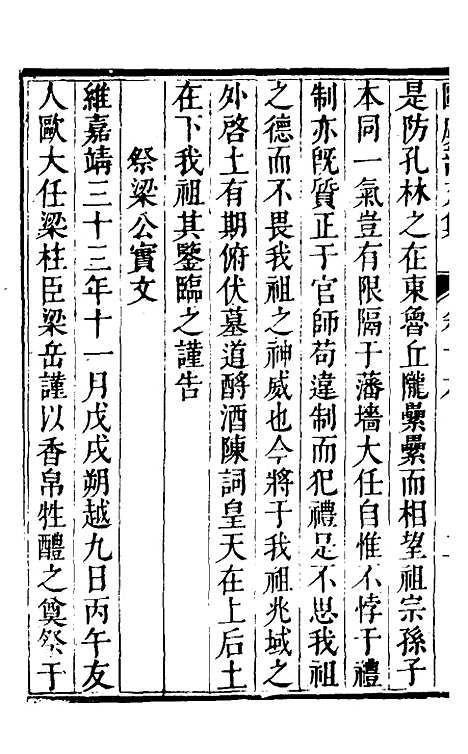 是防孔林之在東魯丘隴纍纍而相望祖宗孫子
本同一氣豈有限隔于藩墻大任自惟不悖于禮
制亦旣質正于官師苟違制而犯禮是不思我祖
之德而不畏我祖之神威也今將于我祖兆域之
外啓土有期俯伏墓道酹酒陳詞皇天在上后土
在下我祖其鑒臨之謹告
祭梁公實文
維嘉靖三十三年十一月戊戌朔越九日丙午友
人歐大任梁柱臣梁岳謹以香帛牲醴之奠祭于